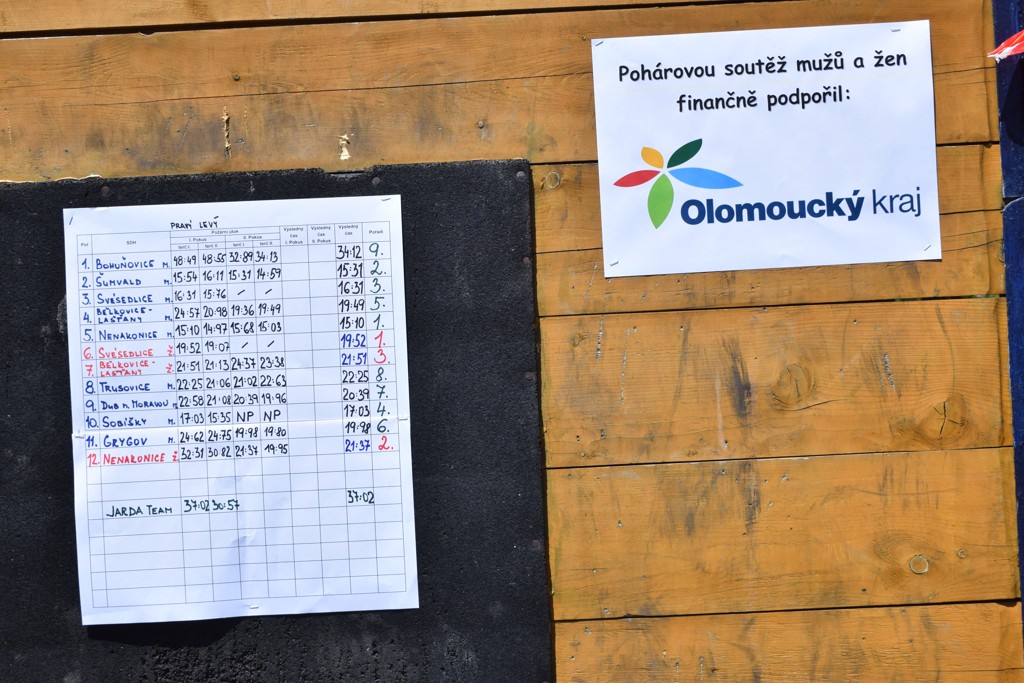 Pohárovou soutěž mužů a žen
finančně podpořil:
Olomoucký kraj
PRAVÝ LEVÝ
Poř SDH Požární útok Výsledný čas I. Pokus Výsledný čas II. Pokus Výsledný čas Pořadí
I. Pokus II. Pokus
terč I. terč II. terč I. terč II.
1. BOHUŇOVICE M. 48:49 48:55 32:89 34:13 34:12 9.
2. ŠUMVALD M. 15:54 16:11 15:31 14:59 15:31 2.
3. SVÉSEDLICE M. 16:31 15:76 / / 16:31 3.
4. BĚLKOVICE-LAŠŤANY M. 24:57 20:98 19:36 19:49 19:49 5.
5. NENAKONICE M. 15:10 14:97 15:68 15:03 15:10 1.
6. SVÉSEDLICE Ž. 19:52 19:07 / / 19:52 1.
7. BĚLKOVICE-LAŠŤANY Ž. 21:51 21:13 24:37 23:38 21:51 3.
8. TRUSOVICE M. 22:25 21:06 21:02 22:63 22:25 8.
9. DUB N. MORAVOU M. 22:58 21:08 20:39 19:96 20:39 7.
10. SOBÍŠKY M. 17:03 15:35 NP NP 17:03 4.
11. GRYGOV M. 24:62 24:75 19:98 19:80 19:98 6.
12. NENAKONICE Ž. 32:31 30:82 21:37 19:95 21:37 2.
JARDA TEAM 37:02 30:57 37:02